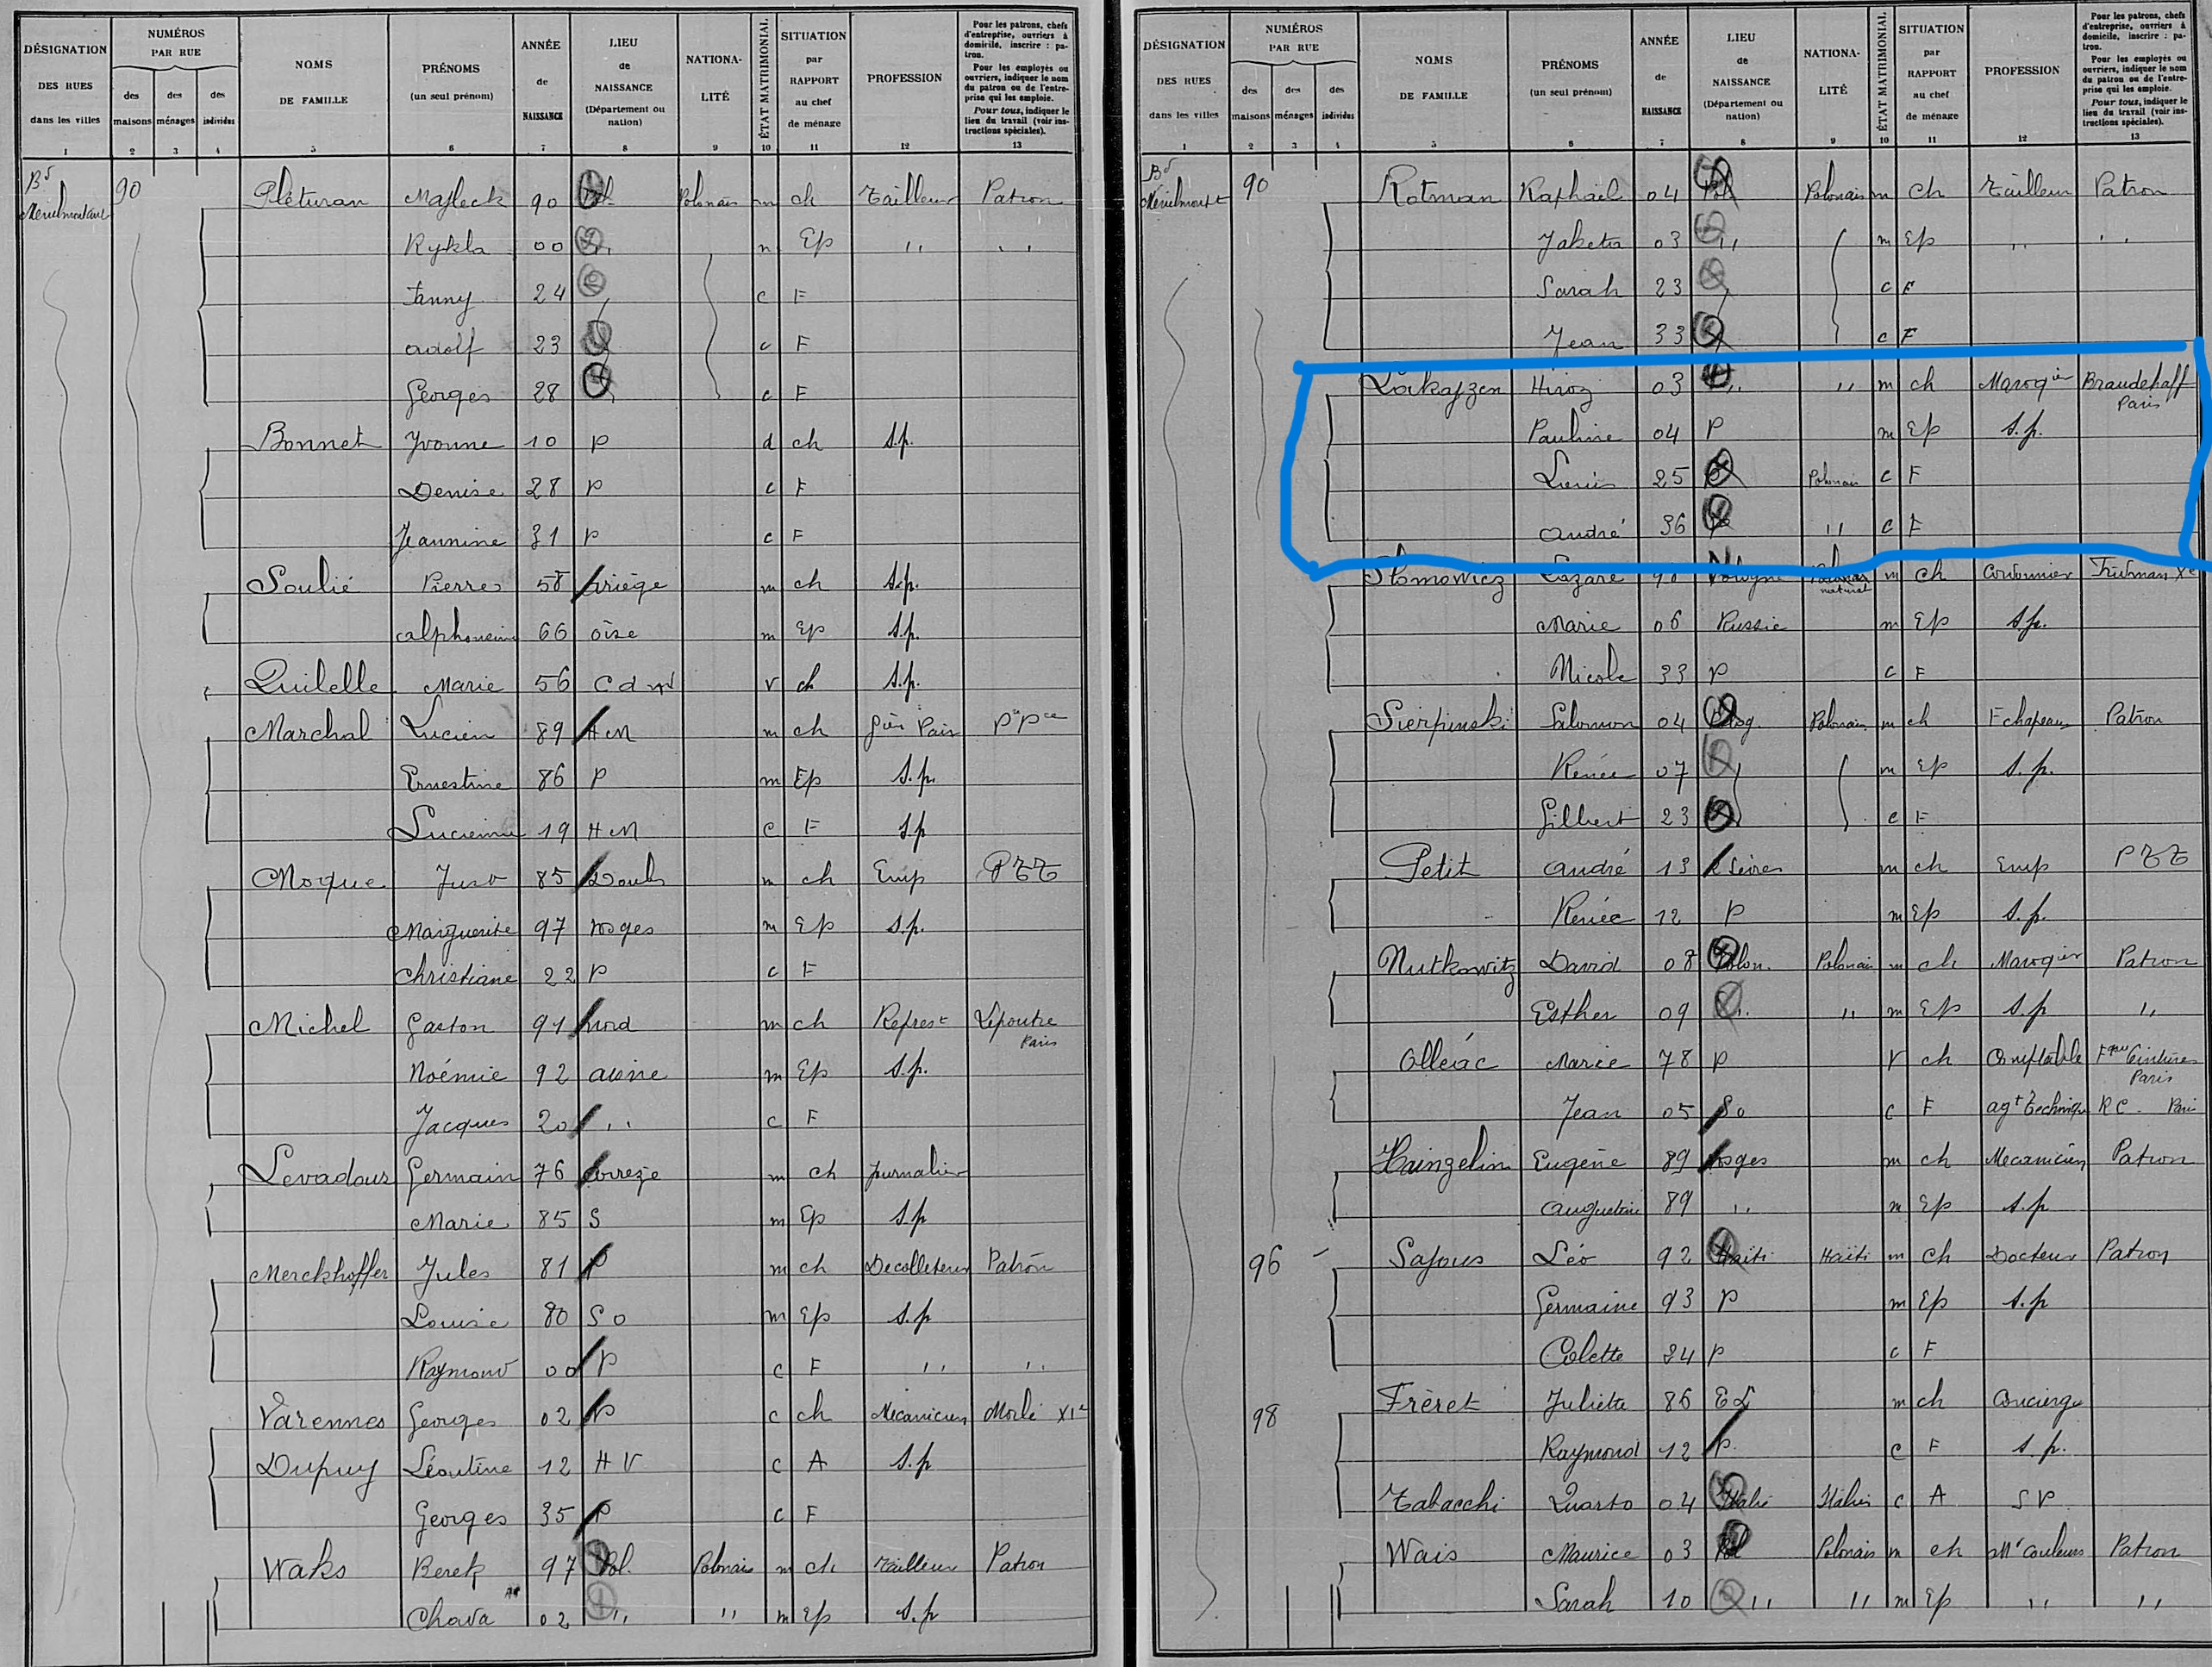 DÉSIGNATION DES RUES dans les villes 1
NUMÉROS PAR RUE
des maisons 2
des ménages 3
des individus 4
NOMS DE FAMILLE 5
PRÉNOMS (un seul prénom) 6
ANNÉE de NAISSANCE 7
LIEU de NAISSANCE (Département ou nation) 8
NATIONALITÉ 9
ÉTAT MATRIMONIAL 10
SITUATION par RAPPORT au chef de ménage 11
PROFESSION 12
Pour les patrons, chefs d'entreprise, ouvriers à domicile, inscrire : patron.
Pour les employés ou ouvriers, indiquer le nom du patron ou de l'entreprise qui les emploie.
Pour tous, indiquer le lieu du travail (voir instructions spéciales). 13
Bd Ménilmontant 90 Majleck 90 Pol. Polonais m ch Tailleur Patron
Rykla 00 ,, m Ep ,, ,,
Fanny 24 c F
Adolf 23 c F
Georges 28 c F
Bonnet Yvonne 10 P d ch S.p.
Denise 28 P c F
Jeannine 31 P c F
Soulié Pierre 58 Ariège m ch S.p.
Alphonsine 66 Oise m Ep S.p.
Quilelle Marie 56 C d N v ch S.p.
Marchal Lucien 89 H M m ch Paris
Ernestine 86 P m Ep S.p.
Lucienne 19 H M c F S.p
Moque Just 85 Doubs m ch Emp PTT
Marguerite 97 Vosges m Ep S.p.
Christiane 22 P c F
Michel Gaston 91 Nord m ch Represt Lepoutre Paris
Noémie 92 Aisne m Ep S.p.
Jacques 20 ,, c F
Levadous Germain 76 Corrèze m ch Journalier
Marie 85 S m Ep S.p
Merckhoffer Jules 81 P m ch Decolleteur Patron
Louise 80 S o m Ep S.p
Raymond 00 P c F ,, ,,
Varennes Georges 02 P c ch Mécanicien Morlé XIe
Dupuy Léontine 12 H V c A S.p
Georges 35 P c F
Waks Berek 97 Pol. Polonais m ch Tailleur Patron
Chava 02 ,, ,, m Ep S.p
DÉSIGNATION DES RUES dans les villes 1
NUMÉROS PAR RUE
des maisons 2
des ménages 3
des individus 4
NOMS DE FAMILLE 5
PRÉNOMS (un seul prénom) 6
ANNÉE de NAISSANCE 7
LIEU de NAISSANCE (Département ou nation) 8
NATIONALITÉ 9
ÉTAT MATRIMONIAL 10
SITUATION par RAPPORT au chef de ménage 11
PROFESSION 12
Pour les patrons, chefs d'entreprise, ouvriers à domicile, inscrire : patron.
Pour les employés ou ouvriers, indiquer le nom du patron ou de l'entreprise qui les emploie.
Pour tous, indiquer le lieu du travail (voir instructions spéciales). 13
Bd Ménilmont 90 Rotman Raphaël 04 Pol. Polonais m ch Tailleur Patron
03 ,, m Ep ,, ,,
Sarah 23 c F
Jean 33 c F
03 ,, ,, m ch Maroqier Paris
Pauline 04 P m Ep S.p.
25 P Polonais c F
André 36 P ,, c F
Slomowicz Lazare Pologne m ch Cordonnier
Marie 06 Russie m Ep S.p.
Nicole 33 P c F
Sierpinski Salomon 04 Polonais m ch F chapeaux Patron
Renée 07 m Ep S.p.
Gilbert 23 c F
Petit André 13 2 Sèvres m ch Emp PTT
Renée 12 P m Ep S.p.
Nutkowitz David 08 Polon. Polonais m ch Maroqier Patron
Esther 09 ,, ,, m Ep S.p ,,
Marie 78 P v ch Comptable Paris
Jean 05 S o c F agt technique R C Paris
Hainzelin Eugène 89 Vosges m ch Mecanicien Patron
Augustine 89 ,, m Ep S.p
96 Sajous Léo 92 Haïti Haïti m ch Docteur Patron
Germaine 93 P m Ep S.p
Colette 24 P c F
98 Frèret Juliette 86 E L m ch Concierge
Raymond 12 P. c F S.p.
Tabacchi Quarto 04 Italie Italien c A S P
Wais Maurice 03 Pol Polonais m ch Mt couleurs Patron
Sarah 10 ,, ,, m Ep ,, ,,